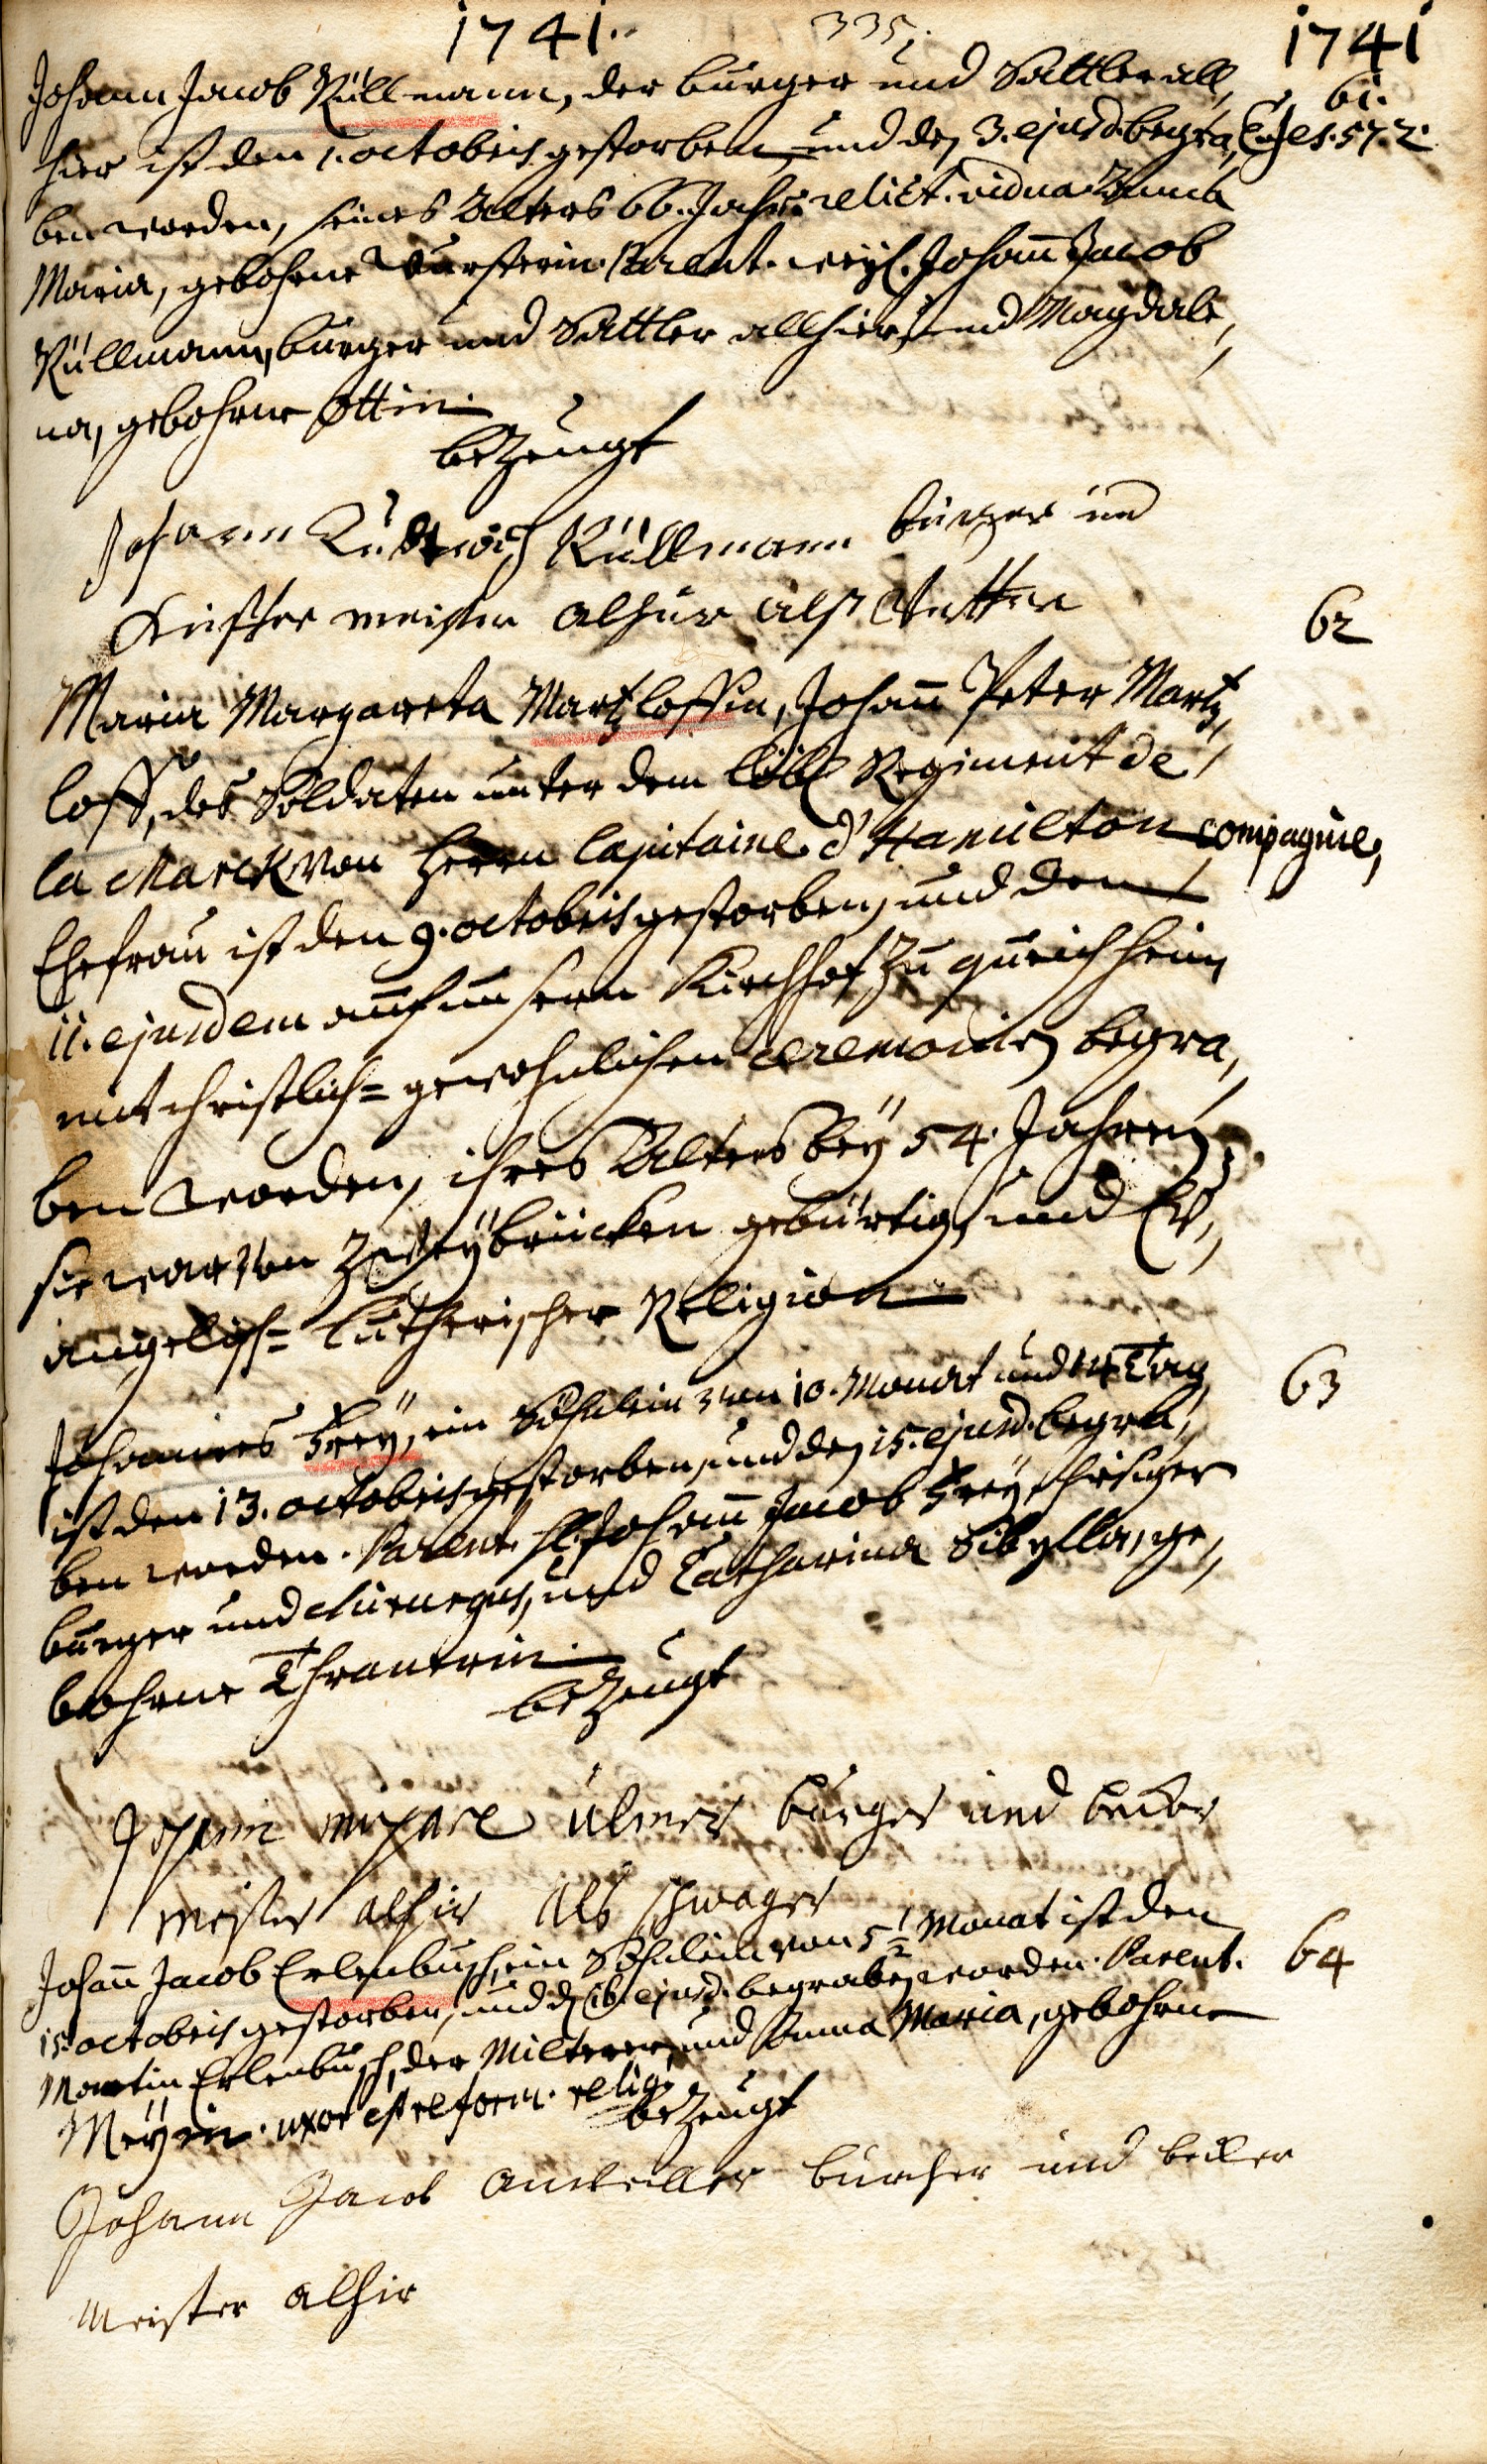 1741. 335. 1741
Johann Jacob Rüllmann, der burger und Sattler all, 61.
hier ist den 1. octobris gestorben, und den 3. ejusd. begra, Es. 57. 2.
ben worden, seines Alters 66. Jahr. relict. vidua Anna
Maria, gebohrne Wursterin. Parent. weyl. Johann Jacob
Rüllmann, burger und Sattler allhier, und Magdale,
na, gebohrne Ottin.
bezeugt
Johann Ludtwich Rüllmann burger und
Kieffer meister alhier alß Vetter
62
Maria Margareta Martzloffin, Johann Peter Martz,
loff, des Soldaten unter dem löbl. Regiment de
la Marck von Herrn Capitaine d'Hamilton compagnie,
Ehefrau ist den 9. octobris gestorben, und den
11. ejusdem auf unserm Kirchhof zu queichheim
mit christlich= gewohnlichen ceremonien begra,
ben worden, ihres Alters bey 54. Jahren,
sie war von Zweybrücken gebürtig, und Ev,
angelisch= lutherischer Religion
63
Johannes Frey, ein Söhnlein von 10. Monat und 14 Tag
ist den 13. octobris gestorben, und den 15. ejusd. begra,
ben worden. Parent. H. Johann Jacob Frey, hiesiger
burger und chirurgus, und Catharina Sibylla, ge,
bohrne Thranerin.
bezeugt
Johann michael ulmer burger und becker
meister alhier als schwager
Johann Jacob Erlenbusch, ein Söhnlein von 5 1/2 Monat ist den 64
15. octobris gestorben, und d. 16. ejusd. begraben worden. Parent.
Martin Erlenbusch, der Milterer, und Anna Maria, gebohrne
Meyin. uxor est reform. relig.
bezeugt
Johann Jacob burcher und becker
Meister alhir